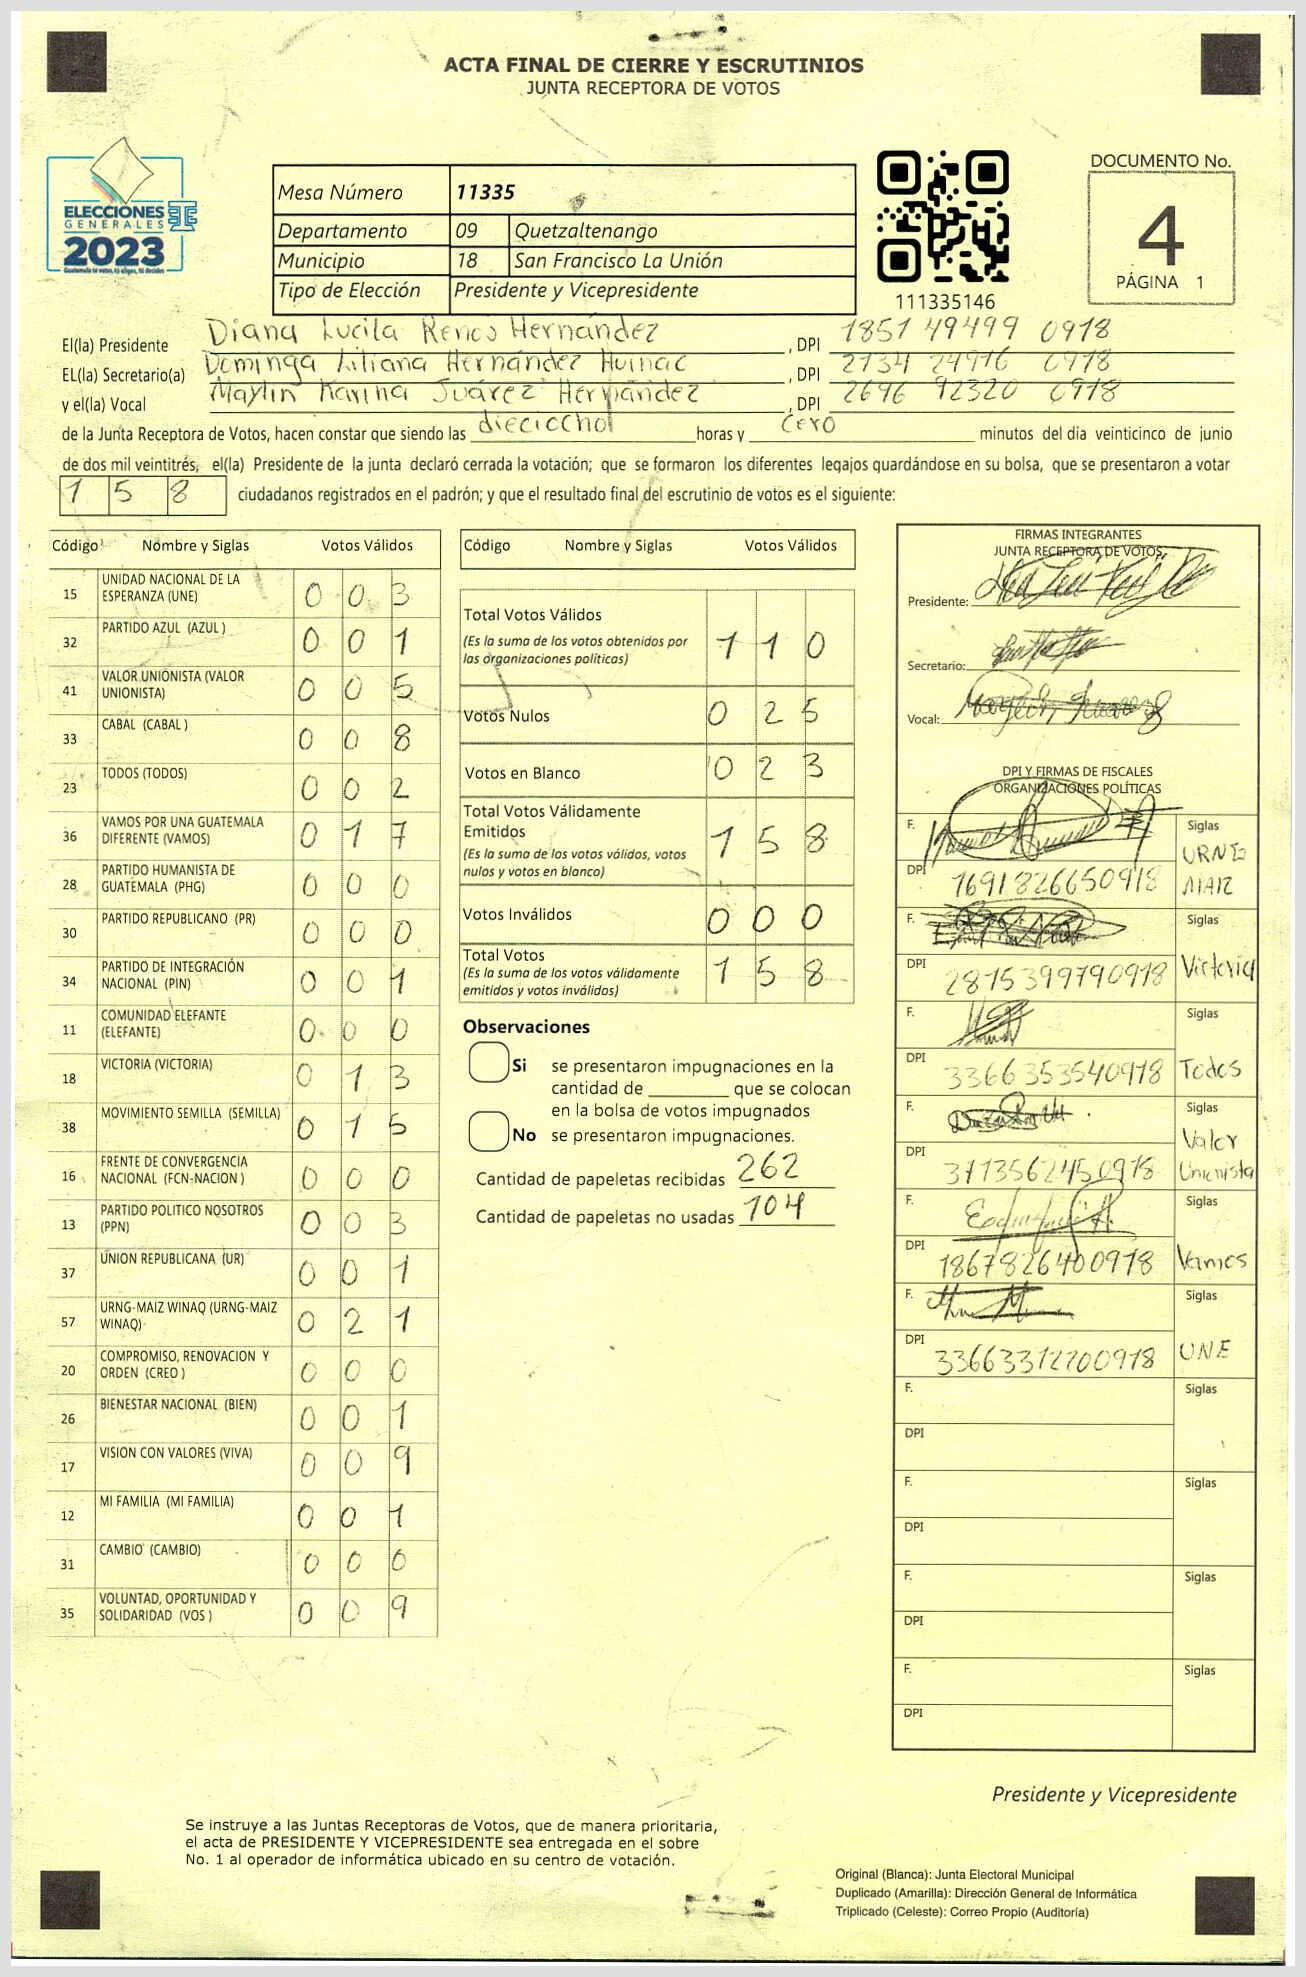 ACTA FINAL DE CIERRE Y ESCRUTINIOS
JUNTA RECEPTORA DE VOTOS
ELECCIONES
GENERALES
2023
Mesa Número 11335
Departamento 09 Quetzaltenango
Municipio 18 San Francisco La Unión
Tipo de Elección Presidente y Vicepresidente
111335146
DOCUMENTO No.
4
PÁGINA 1
El(la) Presidente Diana Lucila Hernández, DPI 1851 49499 0918
EL(la) Secretario(a) Dominga Liliana Hernández Huinac, DPI 2134 24916 0918
y el(la) Vocal Maylin Karina Juárez Hernández, DPI 2696 92320 0918
de la Junta Receptora de Votos, hacen constar que siendo las dieciocho horas y cero minutos del día veinticinco de junio
de dos mil veintitrés, el(la) Presidente de la junta declaró cerrada la votación; que se formaron los diferentes legajos guardándose en su bolsa, que se presentaron a votar
1 5 8 ciudadanos registrados en el padrón; y que el resultado final del escrutinio de votos es el siguiente:
Código Nombre y Siglas Votos Válidos
15 UNIDAD NACIONAL DE LA ESPERANZA (UNE) 0 0 3
32 PARTIDO AZUL (AZUL ) 0 0 1
41 VALOR UNIONISTA (VALOR UNIONISTA) 0 0 5
33 CABAL (CABAL ) 0 0 8
23 TODOS (TODOS) 0 0 2
36 VAMOS POR UNA GUATEMALA DIFERENTE (VAMOS) 0 1 7
28 PARTIDO HUMANISTA DE GUATEMALA (PHG) 0 0 0
30 PARTIDO REPUBLICANO (PR) 0 0 0
34 PARTIDO DE INTEGRACIÓN NACIONAL (PIN) 0 0 1
11 COMUNIDAD ELEFANTE (ELEFANTE) 0 0 0
18 VICTORIA (VICTORIA) 0 1 3
38 MOVIMIENTO SEMILLA (SEMILLA) 0 1 5
16 FRENTE DE CONVERGENCIA NACIONAL (FCN-NACION ) 0 0 0
13 PARTIDO POLITICO NOSOTROS (PPN) 0 0 3
37 UNION REPUBLICANA (UR) 0 0 1
57 URNG-MAIZ WINAQ (URNG-MAIZ WINAQ) 0 2 1
20 COMPROMISO, RENOVACION Y ORDEN (CREO ) 0 0 0
26 BIENESTAR NACIONAL (BIEN) 0 0 1
17 VISION CON VALORES (VIVA) 0 0 9
12 MI FAMILIA (MI FAMILIA) 0 0 1
31 CAMBIO (CAMBIO) 0 0 0
35 VOLUNTAD, OPORTUNIDAD Y SOLIDARIDAD (VOS ) 0 0 9
Código Nombre y Siglas Votos Válidos
Total Votos Válidos 1 1 0
(Es la suma de los votos obtenidos por
las organizaciones políticas)
Votos Nulos 0 2 5
Votos en Blanco 0 2 3
Total Votos Válidamente
Emitidos 1 5 8
(Es la suma de los votos válidos, votos
nulos y votos en blanco)
Votos Inválidos 0 0 0
Total Votos 1 5 8
(Es la suma de los votos válidamente
emitidos y votos inválidos)
Observaciones
Si se presentaron impugnaciones en la
cantidad de ________ que se colocan
en la bolsa de votos impugnados
No se presentaron impugnaciones.
Cantidad de papeletas recibidas 262
Cantidad de papeletas no usadas 104
FIRMAS INTEGRANTES
JUNTA RECEPTORA DE VOTOS
Presidente:
Secretario:
Vocal:
DPI Y FIRMAS DE FISCALES
ORGANIZACIONES POLÍTICAS
F. Siglas URNG MAIZ
DPI 1691826650918
F. Siglas Victoria
DPI 2875399790918
F. Siglas Todos
DPI 3366353540918
F. Siglas Valor Unionista
DPI 3113562450918
F. Siglas Vamos
DPI 1867826400918
F. Siglas UNE
DPI 33663312700918
F. Siglas
DPI
F. Siglas
DPI
F. Siglas
DPI
F. Siglas
DPI
Presidente y Vicepresidente
Se instruye a las Juntas Receptoras de Votos, que de manera prioritaria,
el acta de PRESIDENTE Y VICEPRESIDENTE sea entregada en el sobre
No. 1 al operador de informática ubicado en su centro de votación.
Original (Blanca): Junta Electoral Municipal
Duplicado (Amarilla): Dirección General de Informática
Triplicado (Celeste): Correo Propio (Auditoría)